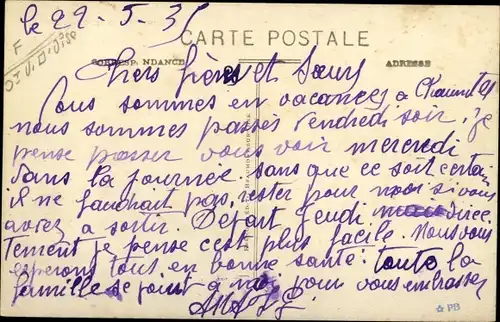 le 29-5-35
CARTE POSTALE
CORRESPONDANCE
ADRESSE
F
D'Oise
Chers Frères et Sœurs
Vous sommes en vacances a
nous sommes passés Vendredi soir. Je
pense passer vous voir mercredi
dans la journée. sans que ce soit certain
il ne faudrait pas rester pour nous si vous
avez a sortir. Départ Jeudi direc
tement je pense c'est plus facile. Nous vous
esperons tous en bonne santé. toute la
famille se joint a moi pour vous embrasser
PB